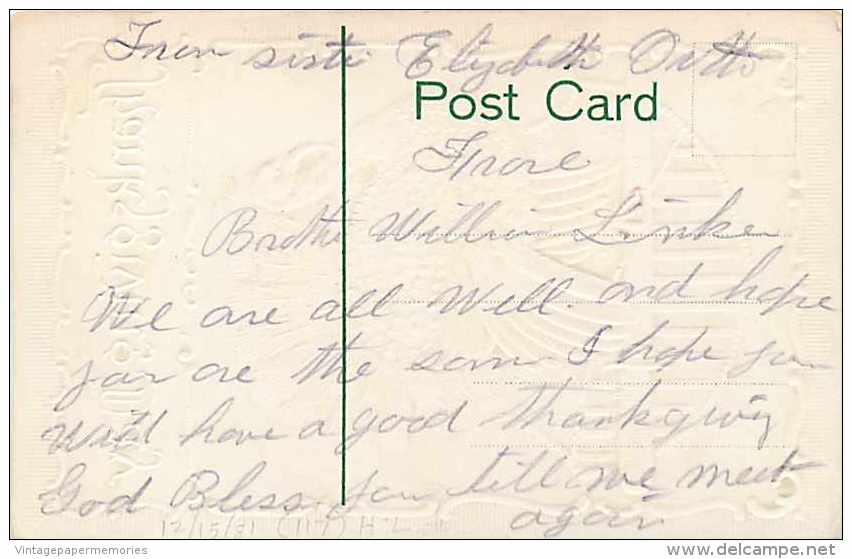 From sister Elizabeth Otto
Post Card
From
Brother William Linker
We are all Well. and hope
you are the same I hope you
Will have a good Thanksgiving
God Bless you till we meet
again
12/15/81 (117) H L
Vintagepapermemories
© delcampe.net
Thanksgiving